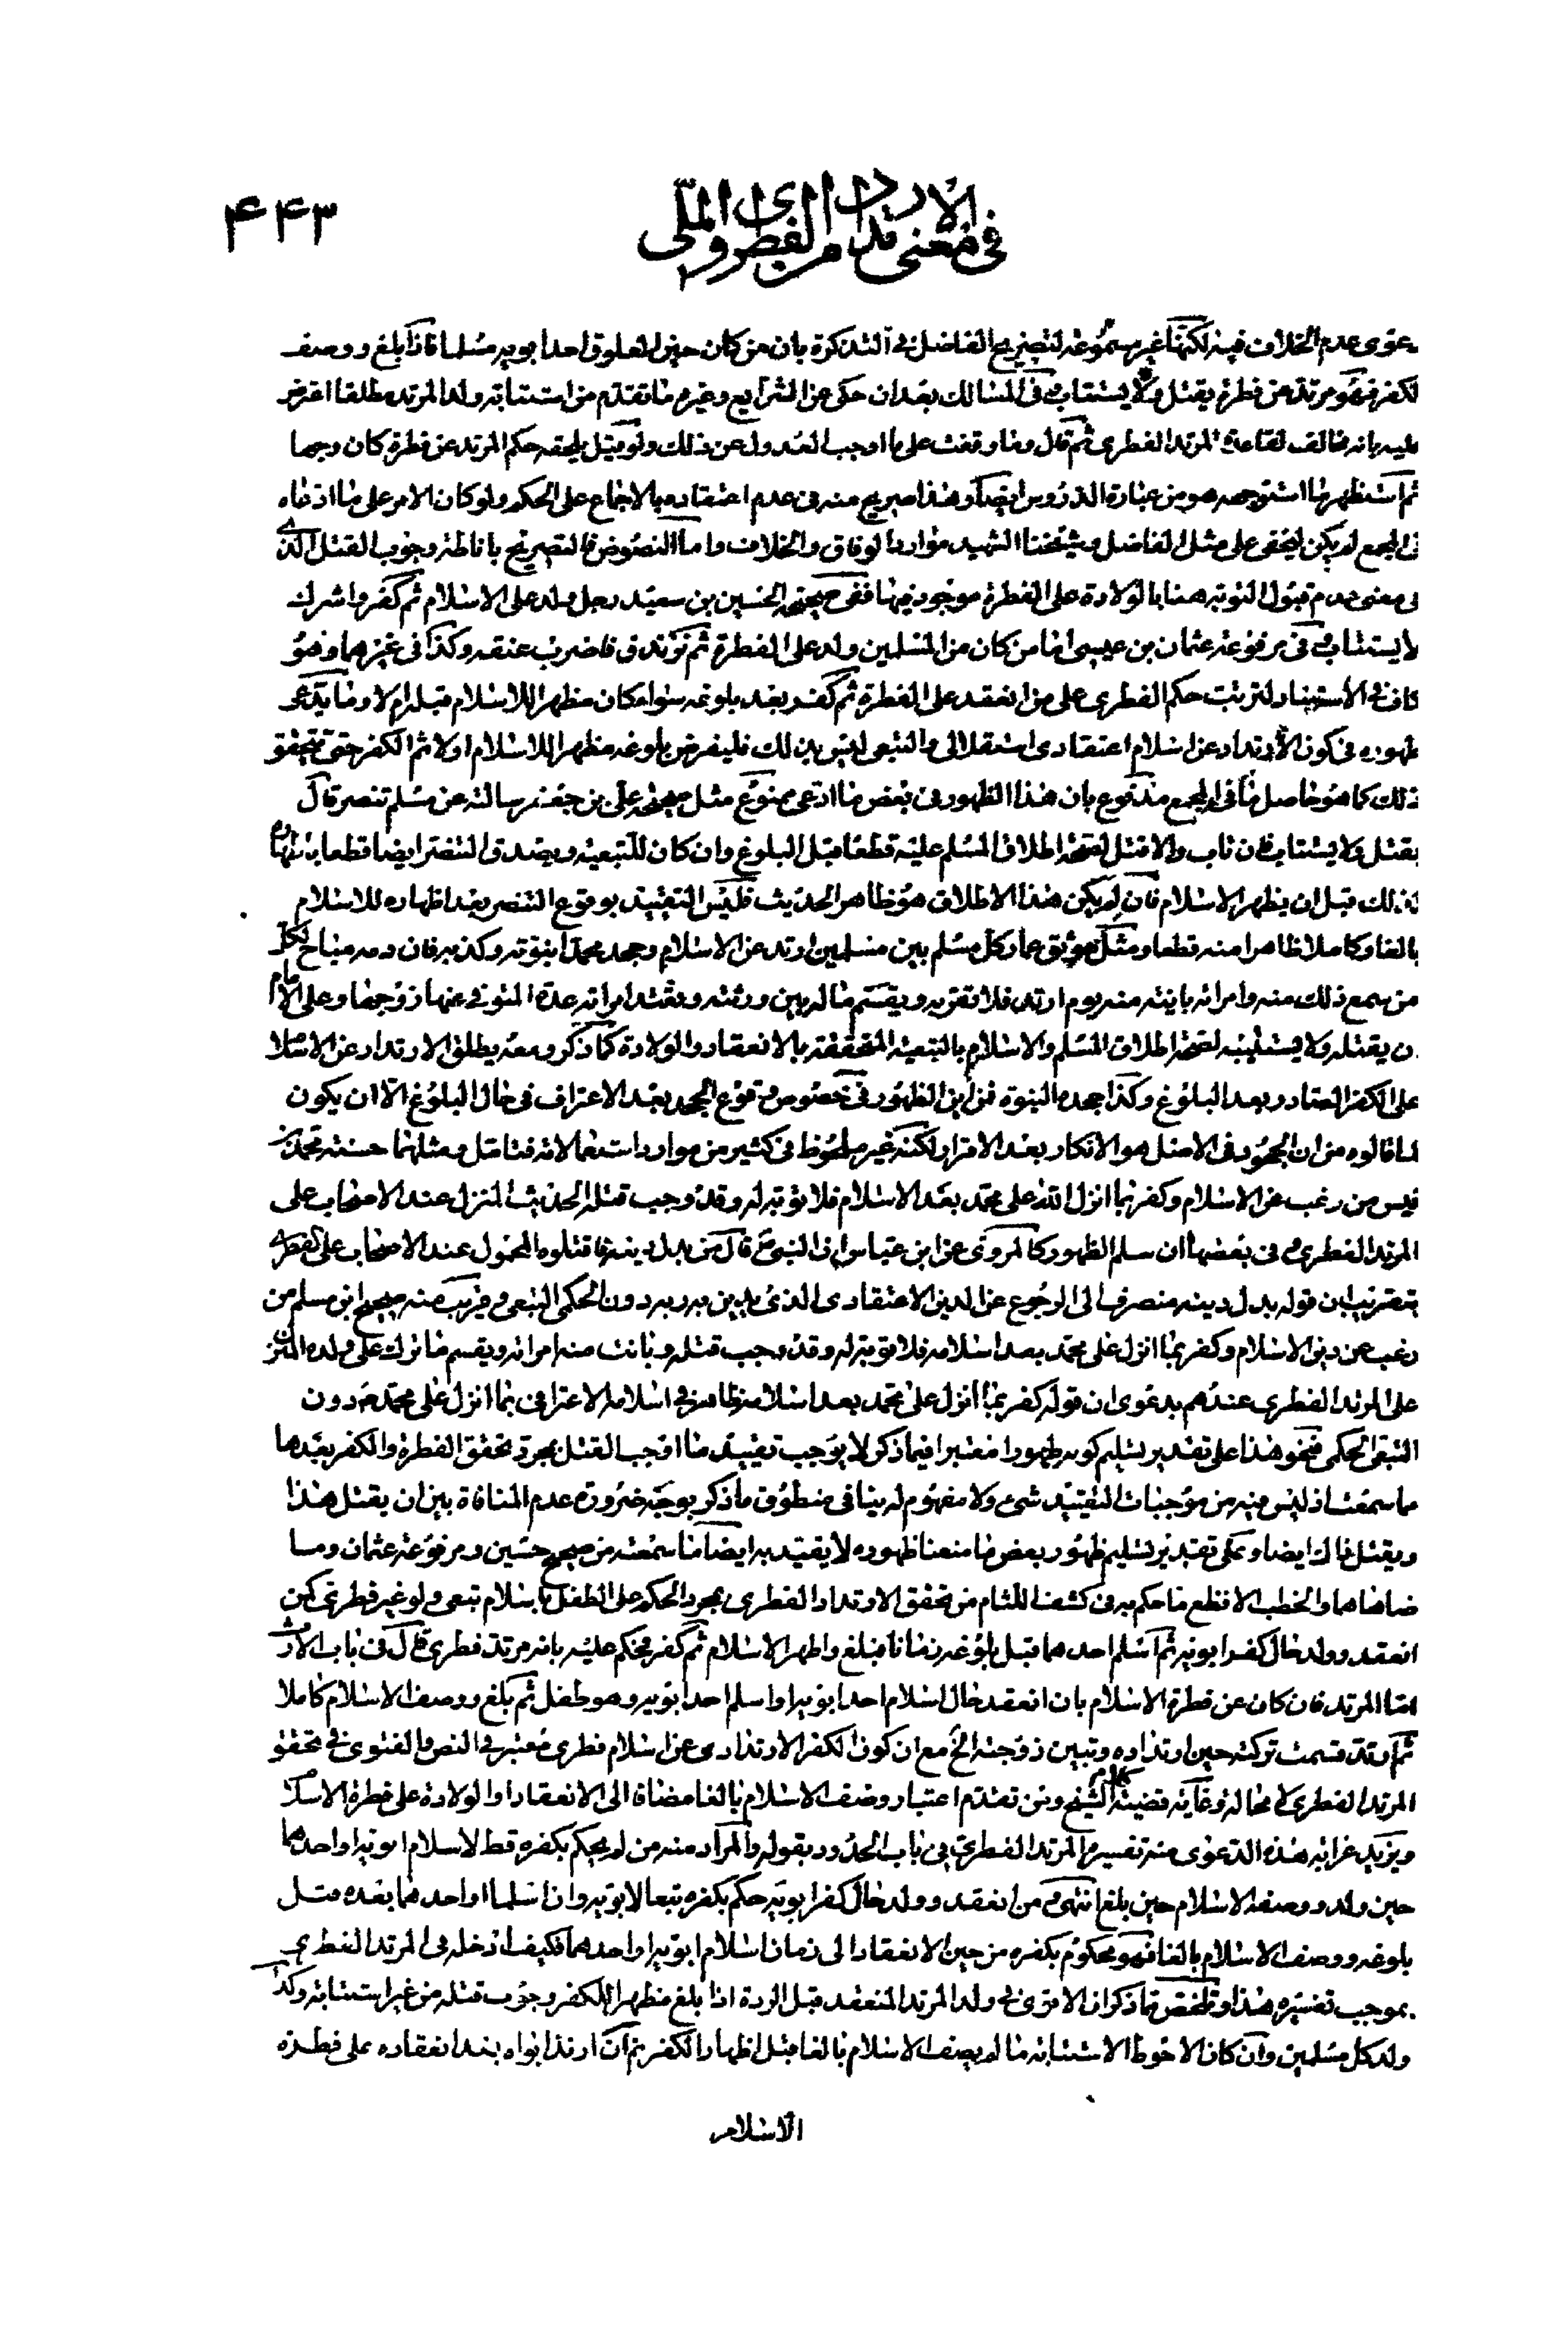 في معنى الارتداد الفطري والملّي
۴۴۳
عوى عدم الخلاف فيه لكنها غير مسموعة لتصريح الفاضل في التذكرة بان من كان حين العلوق احد ابويه مسلما فاذا بلغ ووصف
لكفر فهو مرتد عن فطرة يقتل ولا يستتاب في المسالك بعد ان حكى عن الشرايع وغيره ما تقدم من استتابة ولد المرتد مطلقا اعترض
عليه بانه مخالف لقاعدة المرتد الفطري ثم قال وما وقفت على ما اوجب العدول عن ذلك ولو قيل يلحقه حكم المرتد عن فطرة كان وجها
ثم استظهر ما استوجهه هو من عبارة الدروس ايضا وهذا صريح منه في عدم اعتقاده بالاجماع على الحكم ولو كان الامر على ما ادعاه
في المجمع لم يكن ليخفى على مثل الفاضل وشيخنا الشهيد موارد الوفاق والخلاف واما النصوص فالتصريح باناطة وجوب القتل الذي
في معنى عدم قبول التوبة هنا بالولادة على الفطرة موجود فيها ففي صحيحة الحسين بن سعيد رجل ولد على الاسلام ثم كفر واشرك
لا يستتاب وفي مرفوعة عثمان بن عيسى اما من كان من المسلمين ولد على الفطرة ثم تزندق فاضرب عنقه وكذا في غيرهما وهو
كاف في الاستناد لترتب حكم الفطري على من انعقد على الفطرة ثم كفر بعد بلوغه سواء كان مظهرا للاسلام قبله ام لا وما يدعى
ظهوره في كون الارتداد عن اسلام اعتقادي استقلالي والتبعي ليس بذلك فليفرض بلوغه مظهرا للاسلام اولا ثم الكفر حتى يتحقق
ذلك كما هو حاصل ما في المجمع مدفوع بان هذا الظهور في بعض ما ادعى ممنوع مثل صحيحة علي بن جعفر سالته عن مسلم تنصر قال
يقتل ولا يستتاب فان تاب والا قتل لصحة اطلاق المسلم عليه قطعا قبل البلوغ وان كان للتبعية ويصدق التنصر ايضا قطعا باظهاره
لذلك قبل ان يظهر الاسلام فان لم يكن هذا الاطلاق هو ظاهر الحديث فليس التقييد بوقوع التنصر بعد اظهاره للاسلام
بالغا وكاملا ظاهرا منه قطعا ومثل موثق عمار كل مسلم بين مسلمين ارتد عن الاسلام وجحد محمدا نبوته وكذبه فان دمه مباح لكل
من سمع ذلك منه وامراته باينة منه يوم ارتد فلا تقربه ويقسم ماله بين ورثته وتعتد امراته عدة المتوفى عنها زوجها وعلى الامام
ن يقتله ولا يستتيبه لصحة اطلاق المسلم والاسلام بالتبعية المتحققة بالانعقاد والولادة كما ذكر ومعه يطلق الارتداد عن الاسلام
على الكفر الصادر بعد البلوغ وكذا جحده النبوة فمن اين الظهور في خصوص وقوع الجحد بعد الاعتراف في حال البلوغ الا ان يكون
لما قالوه من ان الجحود في الاصل هو الانكار بعد الاقرار ولكنه غير ملحوظ في كثير من موارد استعمالاته فتامل ومثلهما حسنة محمد بن
قيس من رغب عن الاسلام وكفر بما انزل الله على محمد بعد الاسلام فلا توبة له وقد وجب قتله الحديث المنزل عند الاصحاب على
المرتد الفطري وفي بعضها ان سلم الظهور كالمروي عن ابن عباس ان النبي ص قال من بدل دينه فاقتلوه المحمول عند الاصحاب على الفطري
بتقريب ان قوله بدل دينه منصرف الى الرجوع عن الدين الاعتقادي الذي يدين به ربه دون الحكمي التبعي وقريب منه صحيح ابن مسلم من
رغب عن دين الاسلام وكفر بما انزل على محمد بعد اسلامه فلا توبة له وقد وجب قتله وبانت منه امراته ويقسم ما ترك على ولده المنزل
على المرتد الفطري عندهم بدعوى ان قوله كفر بما انزل على محمد بعد اسلامه ظاهر في اسلامه الاعترافي بما انزل على محمد ص دون
التبعي الحكمي فنحو هذا على تقدير تسليم كونه ظهورا معتبرا فيما ذكر لا يوجب تقييد ما اوجب القتل بمجرد تحقق الفطرة والكفر بعدها
مما سمعت اذ ليس فيه من موجبات التقييد شيء ولا مفهوم له ينافي منطوق ما ذكر بوجه ضرورة عدم المنافاة بين ان يقتل هذا
ويقتل ذاك ايضا وعلى تقدير تسليم ظهور بعض ما منعنا ظهوره لا يقيد به ايضا ما سمعته من صحيح حسين ومرفوعة عثمان وما
ضاهاهما والخطب الافظع ما حكم به في كشف اللثام من تحقق الارتداد الفطري بمجرد الحكم على الطفل باسلام تبعي ولو غير فطري كمن
انعقد وولد حال كفر ابويه ثم اسلم احدهما قبل بلوغه زمانا فبلغ واظهر الاسلام ثم كفر فيحكم عليه بانه مرتد فطري قال في باب الارث
اما المرتد فان كان عن فطرة الاسلام بان انعقد حال اسلام احد ابويه او اسلم احد ابويه وهو طفل ثم بلغ ووصف الاسلام كاملا
ثم ارتد قسمت تركته حين ارتداده وتبين زوجته الخ مع ان كون الكفر الارتدادي عن اسلام فطري معتبر في النص والفتوى في تحقق
المرتد الفطري لا محالة وغاية قضية كلام الشيخ ومن تقدم اعتبار وصف الاسلام بالغا مضافا الى الانعقاد او الولادة على فطرة الاسلام
ويزيد غرابة هذه الدعوى منه تفسيره المرتد الفطري في باب الحدود بقوله والمراد منه من لم يحكم بكفره قط لاسلام ابويه او احدهما
حين ولد ووصف الاسلام حين بلغ انتهى ومن انعقد وولد حال كفر ابويه حكم بكفره تبعا لابويه وان اسلما او احدهما بعده قبل
بلوغه ووصف الاسلام بالغا فهو محكوم بكفره من حين الانعقاد الى زمان اسلام ابويه او احدهما فكيف ادخله في المرتد الفطري
بموجب تفسيره هذا وتلخص مما ذكر ان الاقوى في ولد المرتد المنعقد قبل الردة اذا بلغ مظهرا للكفر وجوب قتله من غير استتابة وكذا
ولد كل مسلمين وان كان الاحوط الاستتابة ما لم يصف الاسلام بالغا قبل اظهار الكفر نعم ان ارتد ابواه بعد انعقاده على فطرة
الاسلام